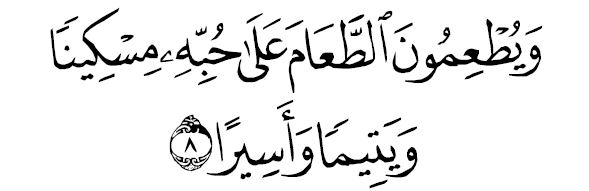 وَيُطْعِمُونَ ٱلطَّعَامَ عَلَىٰ حُبِّهِۦ مِسْكِينًا
وَيَتِيمًا وَأَسِيرًا ٨